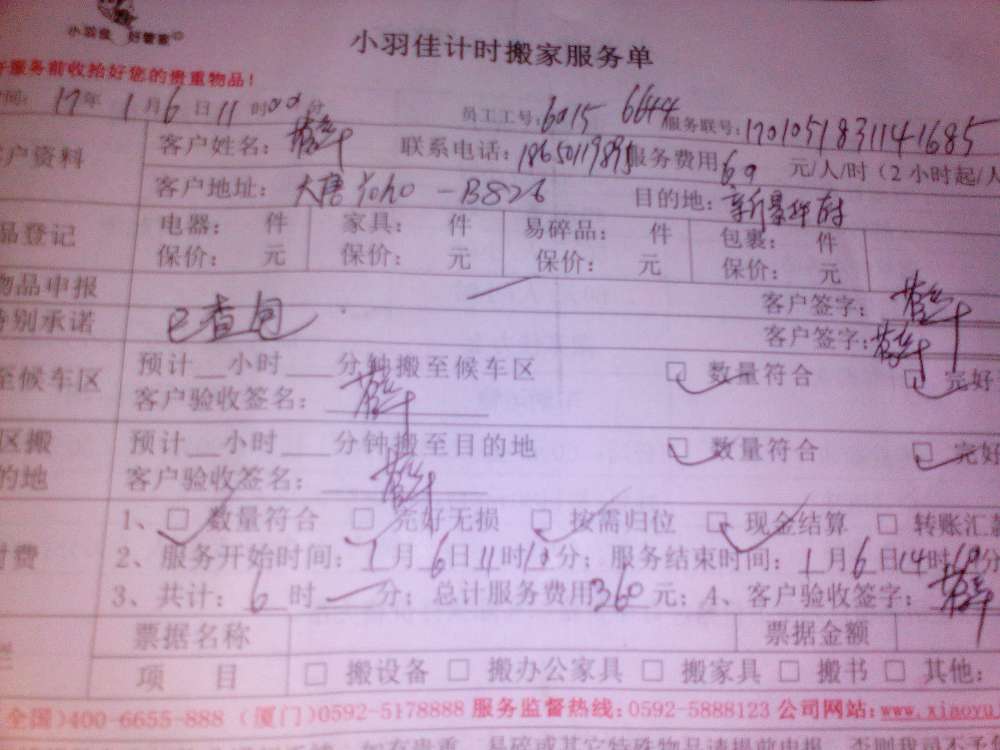 小羽佳 好管家
小羽佳计时搬家服务单
服务前收拾好您的贵重物品！
间：17年1月6日11时00分 员工工号：6015 6644 服务联号：1701051831141685
户资料 客户姓名： 联系电话： 服务费用60元/人/时（2小时起/人
客户地址：大唐 -B826 目的地：新景祥府
品登记 电器： 件 家具： 件 易碎品： 件 包裹： 件
保价： 元 保价： 元 保价： 元 保价： 元
物品申报 客户签字：
特别承诺 已查包 客户签字：
至候车区 预计__小时___分钟搬至候车区 □ 数量符合 □ 完好
客户验收签名：
区搬 预计__小时___分钟搬至目的地 □ 数量符合 □ 完好
的地 客户验收签名：
付费 1、□ 数量符合 □ 完好无损 □ 按需归位 □ 现金结算 □ 转账汇
2、服务开始时间：1月6日11时10分；服务结束时间：1月6日14时10分
3、共计：6时一分；总计服务费用360元；4、客户验收签字：
票据名称 票据金额
项 目 □ 搬设备 □ 搬办公家具 □ 搬家具 □ 搬书 □ 其他：
全国）400-6655-888（厦门）0592-5178888 服务监督热线：0592-5888123 公司网站：www.xiaoyu